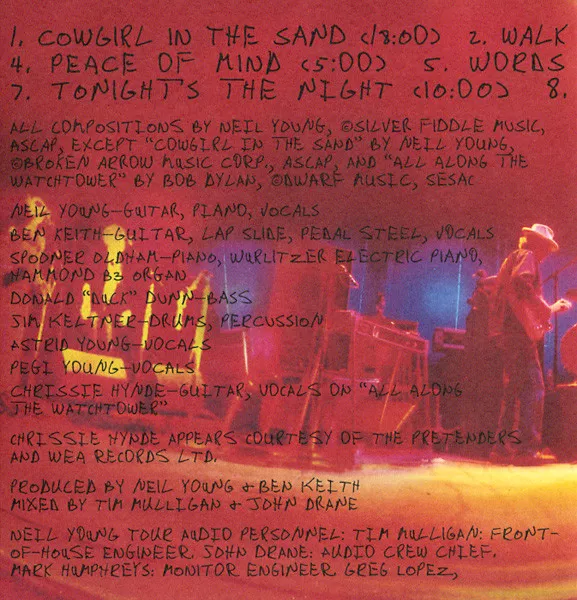 1. COWGIRL IN THE SAND (18:00) 2. WALK
4. PEACE OF MIND (5:00) 5. WORDS
7. TONIGHT'S THE NIGHT (10:00) 8.
ALL COMPOSITIONS BY NEIL YOUNG, ©SILVER FIDDLE MUSIC,
ASCAP, EXCEPT "COWGIRL IN THE SAND" BY NEIL YOUNG,
©BROKEN ARROW MUSIC CORP., ASCAP, AND "ALL ALONG THE
WATCHTOWER" BY BOB DYLAN, ©DWARF MUSIC, SESAC
NEIL YOUNG-GUITAR, PIANO, VOCALS
BEN KEITH-GUITAR, LAP SLIDE, PEDAL STEEL, VOCALS
SPOONER OLDHAM-PIANO, WURLITZER ELECTRIC PIANO,
HAMMOND B3 ORGAN
DONALD "DUCK" DUNN-BASS
JIM KELTNER-DRUMS, PERCUSSION
ASTRID YOUNG-VOCALS
PEGI YOUNG-VOCALS
CHRISSIE HYNDE-GUITAR, VOCALS ON "ALL ALONG
THE WATCHTOWER"
CHRISSIE HYNDE APPEARS COURTESY OF THE PRETENDERS
AND WEA RECORDS LTD.
PRODUCED BY NEIL YOUNG + BEN KEITH
MIXED BY TIM MULLIGAN & JOHN DRANE
NEIL YOUNG TOUR AUDIO PERSONNEL: TIM MULLIGAN: FRONT-
OF-HOUSE ENGINEER. JOHN DRANE: AUDIO CREW CHIEF.
MARK HUMPHREYS: MONITOR ENGINEER. GREG LOPEZ,